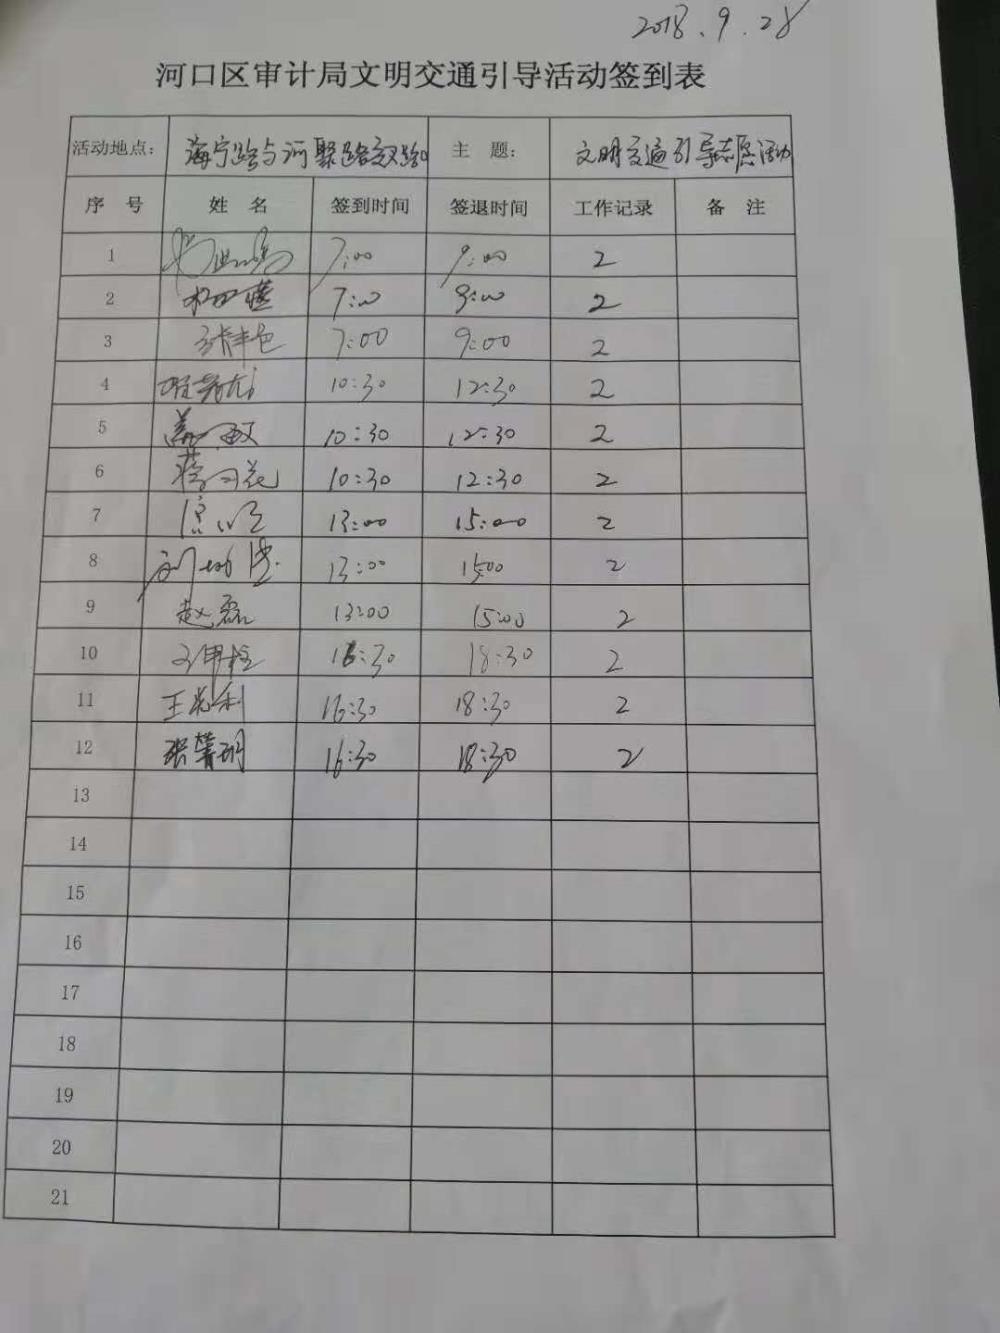 2018.9.28
河口区审计局文明交通引导活动签到表
活动地点： 海宁路与河聚路交叉路口 主 题： 文明交通引导志愿活动
序 号 姓 名 签到时间 签退时间 工作记录 备 注
1 7:00 9:00 2
2 7:00 9:00 2
3 7:00 9:00 2
4 10:30 12:30 2
5 10:30 12:30 2
6 10:30 12:30 2
7 13:00 15:00 2
8 13:00 1500 2
9 赵磊 13:00 15:00 2
10 16:30 18:30 2
11 16:30 18:30 2
12 张馨玥 16:30 18:30 2
13
14
15
16
17
18
19
20
21